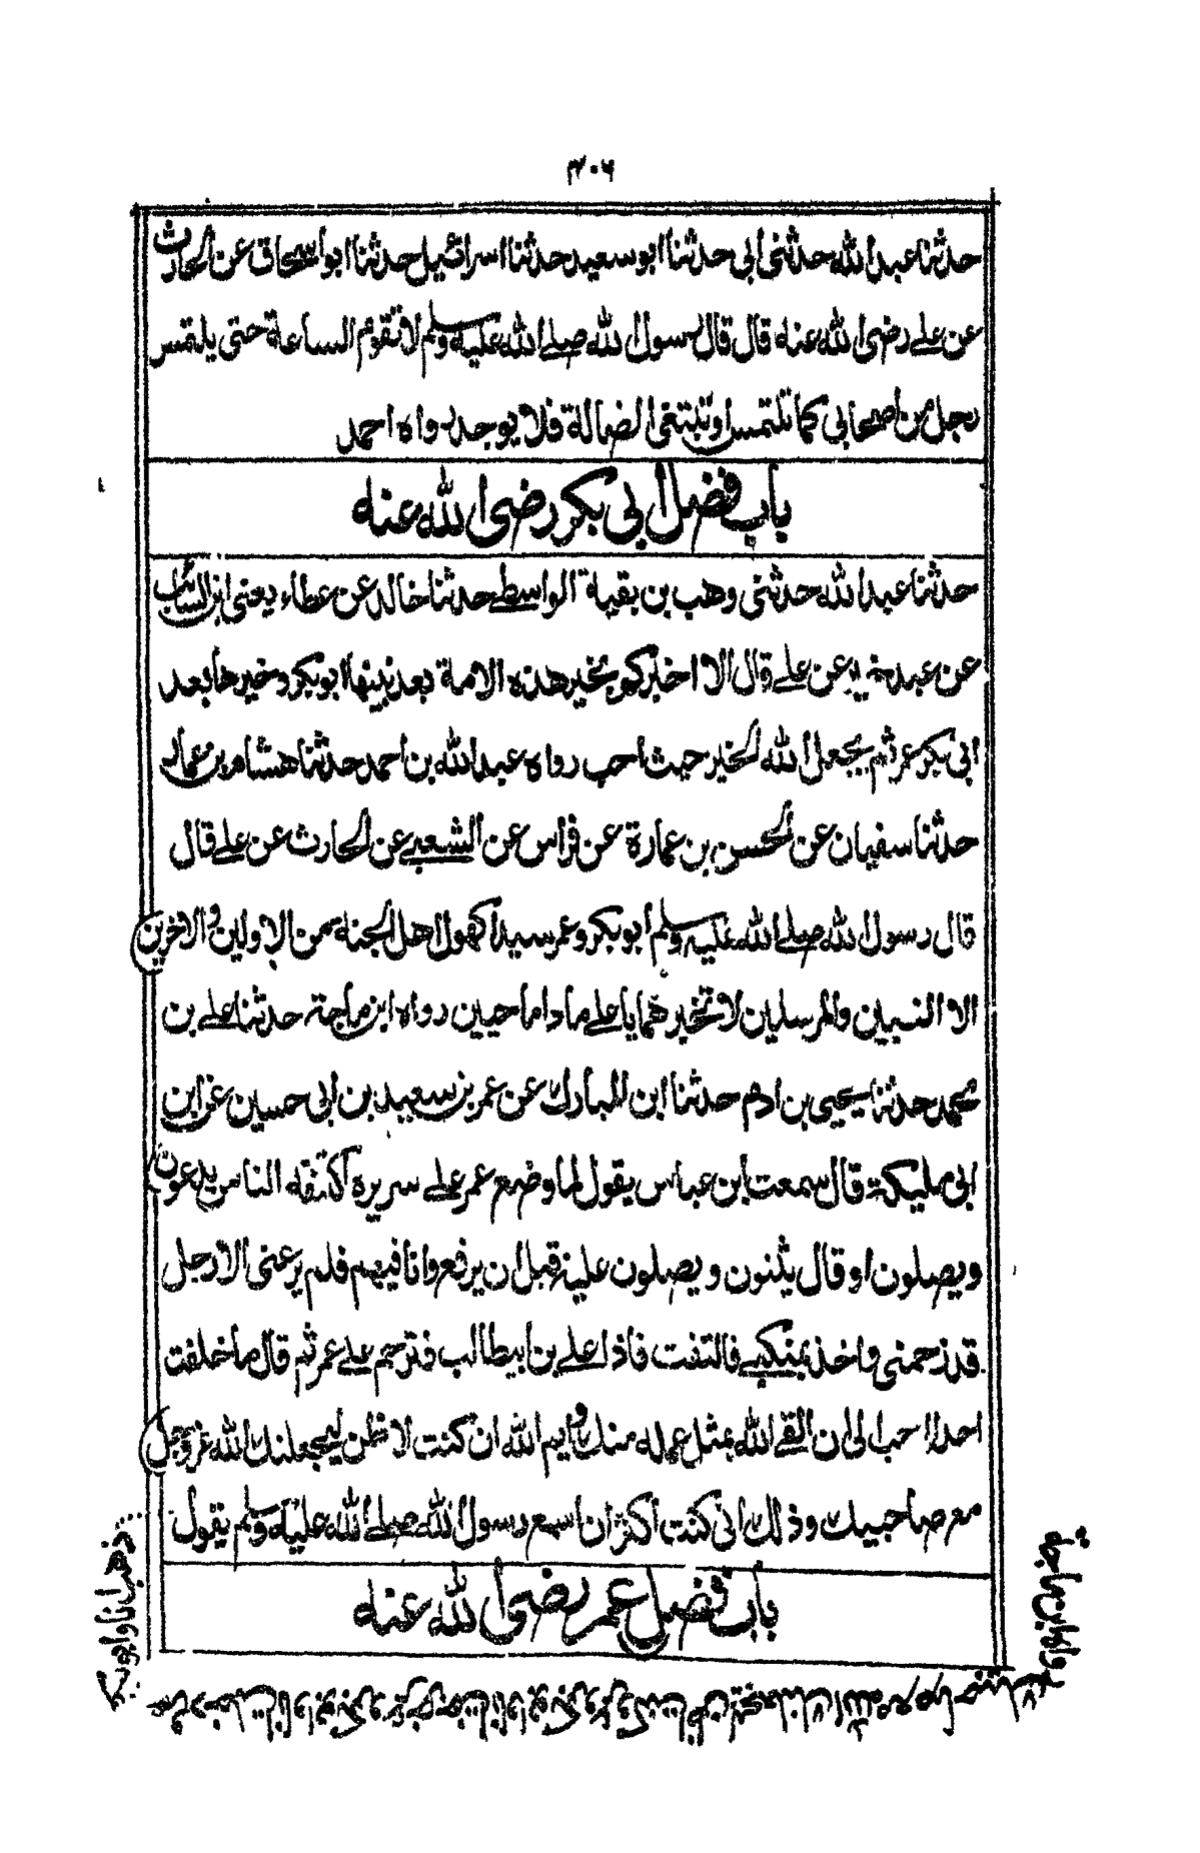 ٣٠٦
حدثنا عبد الله حدثني أبي حدثنا ابو سعيد حدثنا اسرائيل حدثنا ابو اسحاق عن الحارث
عن علي رضي الله عنه قال قال رسول الله صلے الله عليه وسلم لا تقوم الساعة حتى يلتمس
رجل من أصحابي كما تلتمس او تبتغى الضالة فلا يوجد رواه احمد
باب فضل أبي بكر رضي الله عنه
حدثنا عبد الله حدثني وهب بن بقية الواسطے حدثنا خالد عن عطاء يعني ابن السائب
عن عبد خير عن علے قال الا اخبركم بخير هذه الامة بعد نبيها ابو بكر وخيرها بعد
ابي بكر عمر ثم يجعل الله الخير حيث احب رواه عبد الله بن احمد حدثنا هشام بن عمار
حدثنا سفيان عن الحسن بن عمارة عن فراس عن الشعبے عن الحارث عن علے قال
قال رسول الله صلے الله عليه وسلم أبو بكر وعمر سيدا كهول اهل الجنة من الاولين والاخرين
الا النبيين والمرسلين لا تخبرهما يا علے ما داما حيين رواه ابن ماجة حدثنا علے بن
محمد حدثنا يحيى بن ادم حدثنا ابن المبارك عن عمر بن سعيد بن ابي حسين عن ابن
ابي مليكة قال سمعت ابن عباس يقول لما وضع عمر علے سريره اكتنفه الناس يدعون
ويصلون او قال يثنون ويصلون عليه قبل ان يرفع وانا فيهم فلم يرعني الا رجل
قد زحمني واخذ بمنكبے فالتفت فاذا علے بن ابيطالب فترحم علے عمر ثم قال ما خلفت
احدا احب الى ان القے الله بمثل عمله منك وايم الله ان كنت لاظن ليجعلنك الله عز وجل
مع صاحبيك وذلك اني كنت اكثر ان اسمع رسول الله صلے الله عليه وسلم يقول
باب فضل عمر رضي الله عنه
ذهبت انا وابو بكر
وعمر ودخلت انا وابو بكر وعمر وخرجت انا وابو بكر وعمر وكنت اظن ليجعلنك الله مع صاحبيك
رواه ابن ماجة